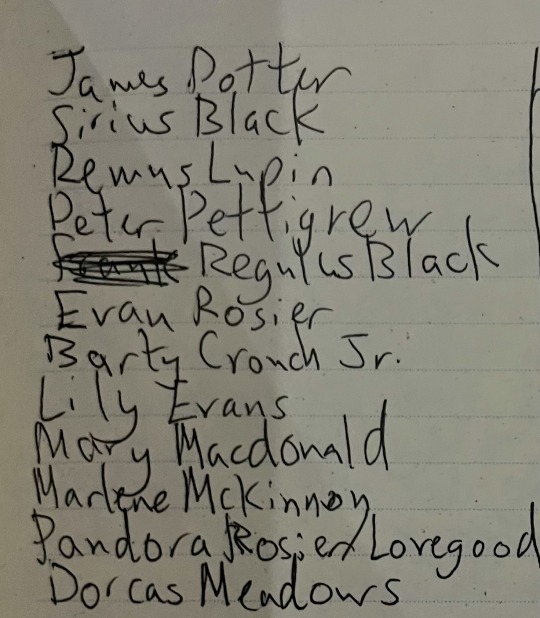 James Potter
Sirius Black
Remus Lupin
Peter Pettigrew
Regulus Black
Evan Rosier
Barty Crouch Jr.
Lily Evans
Mary Macdonald
Marlene McKinnon
Pandora Rosier/Lovegood
Dorcas Meadows